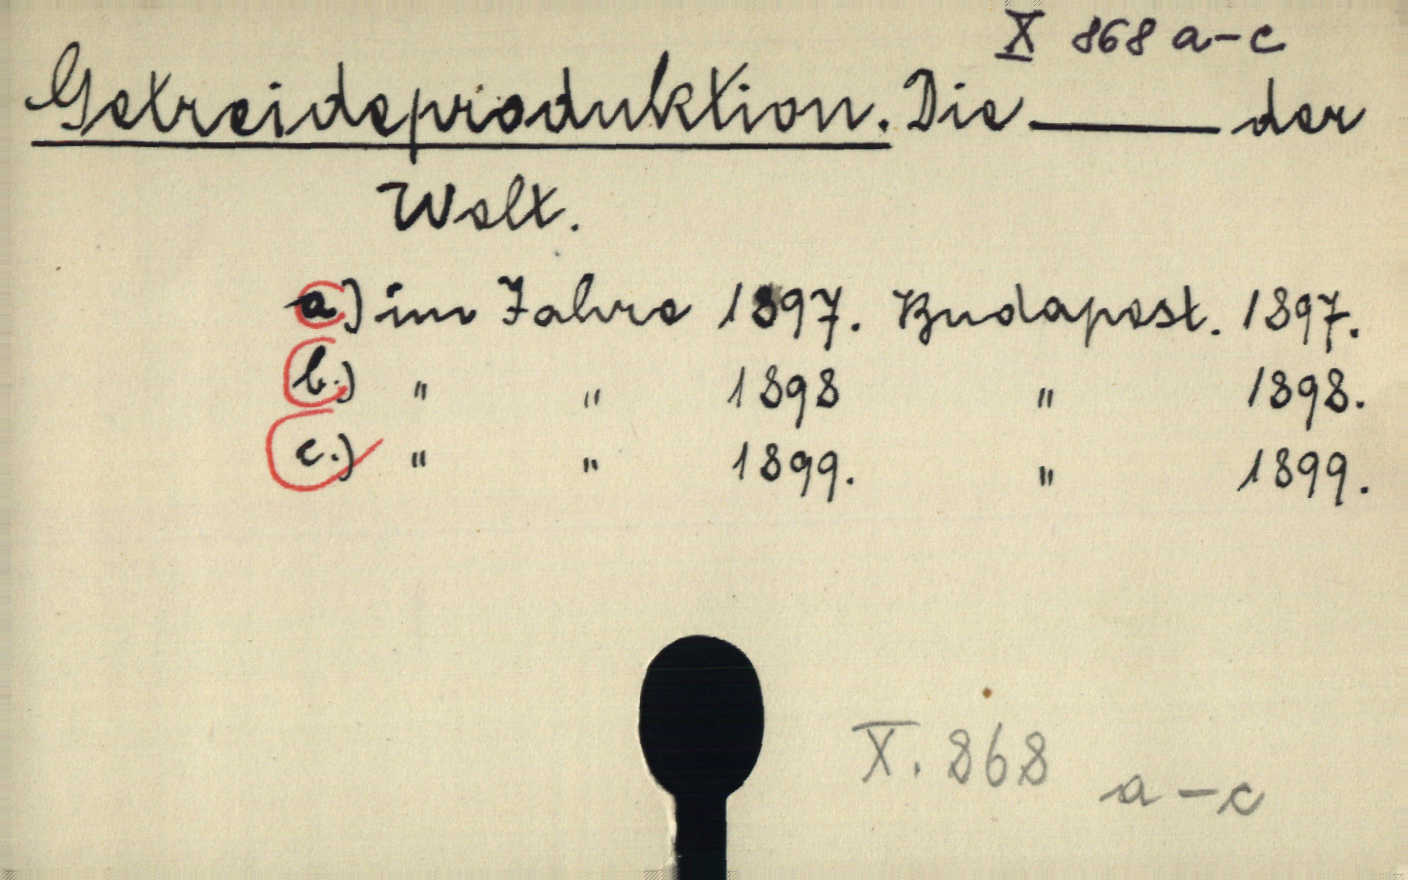 X 868 a-c
Getreideproduktion. Die —— der
Welt.
a) im Jahre 1897. Budapest. 1897.
b.) " " 1898 " 1898.
c.) " " 1899. " 1899.
X. 868 a-c